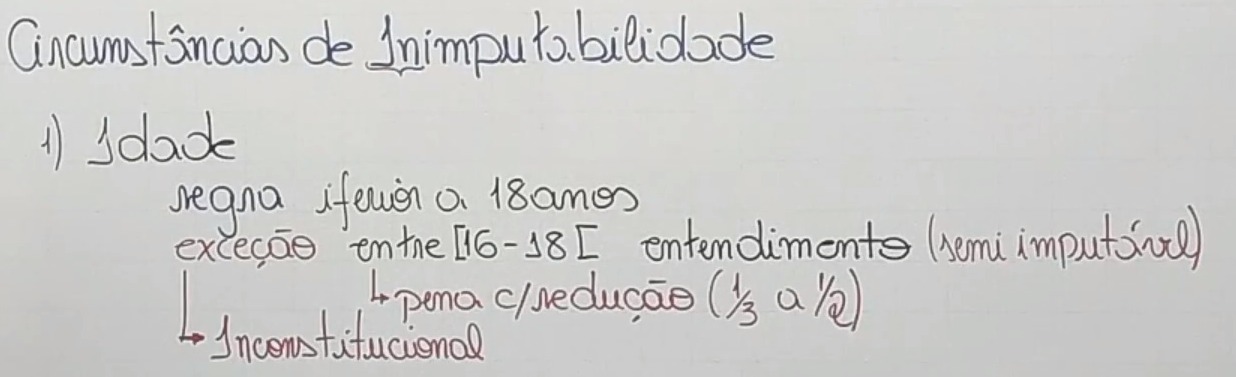 Circunstâncias de Inimputabilidade
1) Idade
regra iferior a 18 anos
exceção entre [16-18[ entendimento (semi imputável)
↳ pena c/ redução (1/3 a 1/2)
↳ Inconstitucional